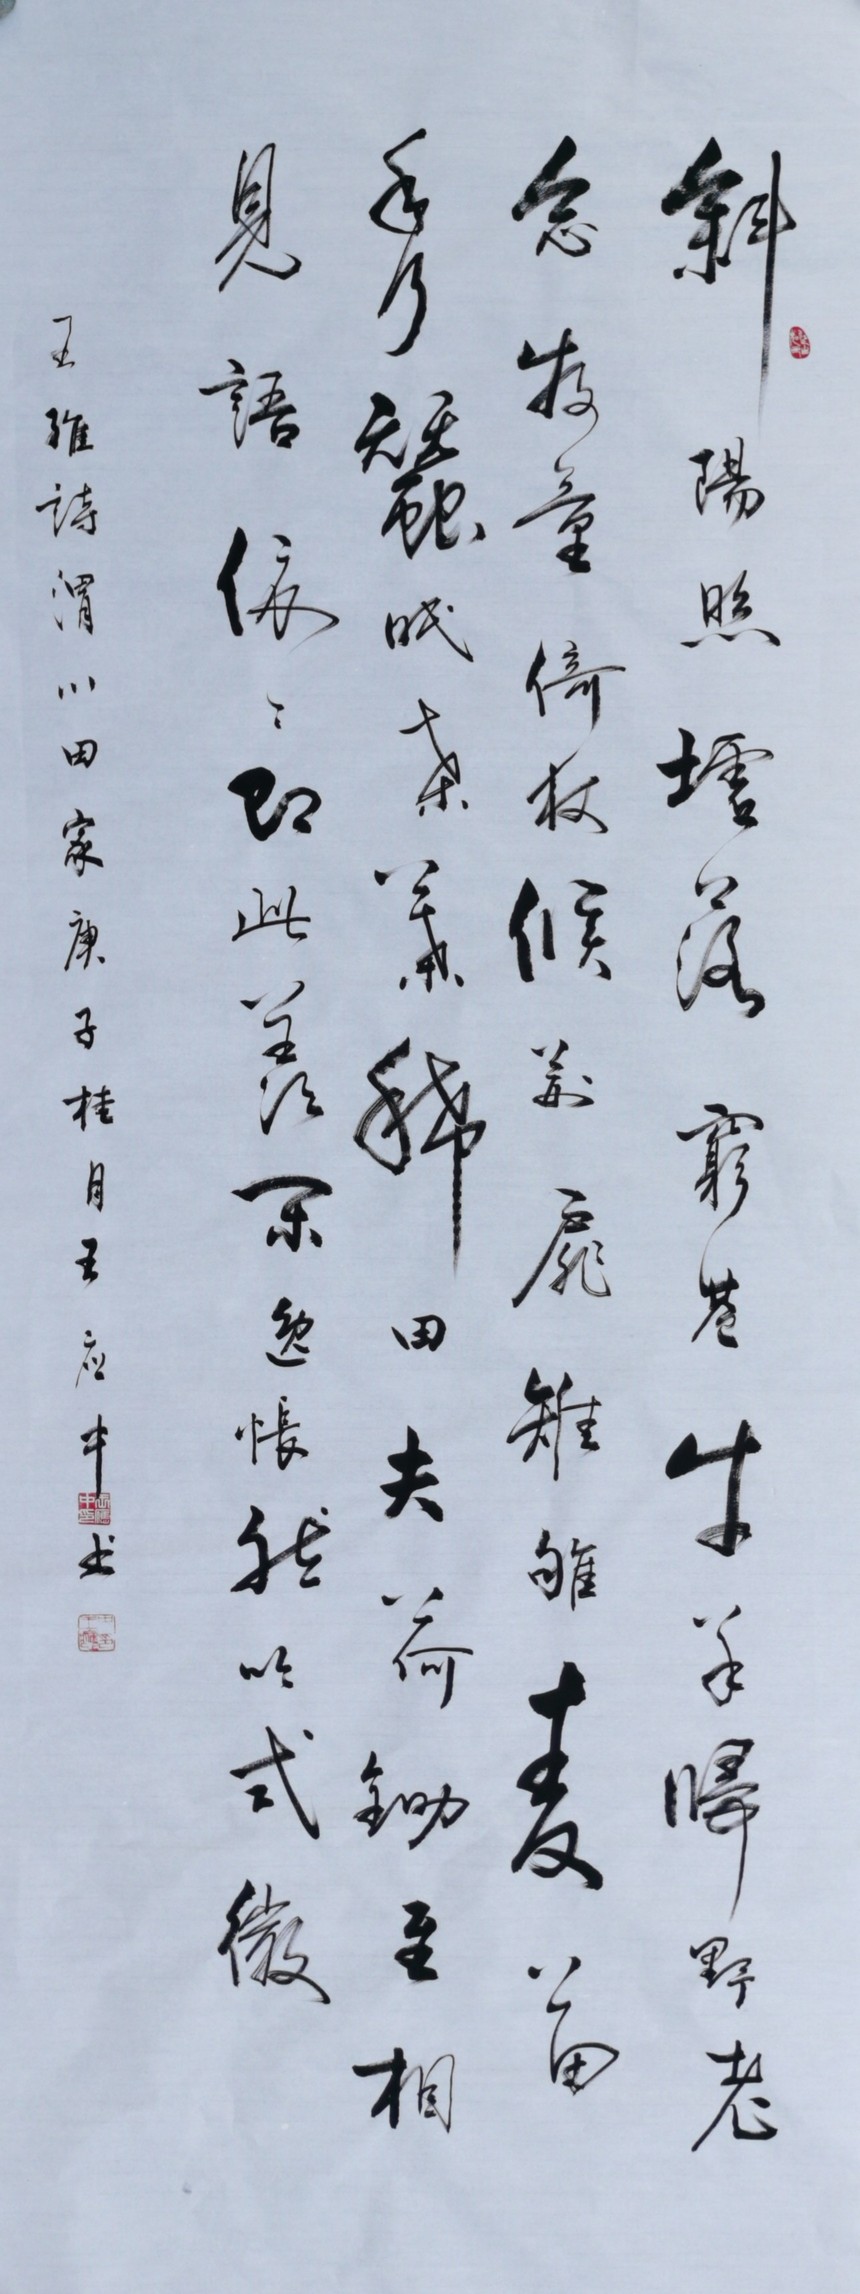 斜陽照墟落窮巷牛羊歸野老
念牧童倚杖候荆扉雉雊麦苗
秀蠶眠桑葉稀田夫荷鋤至相
見語依〻即此羨閑逸悵然吟式微
王維詩渭川田家庚子桂月王应中书